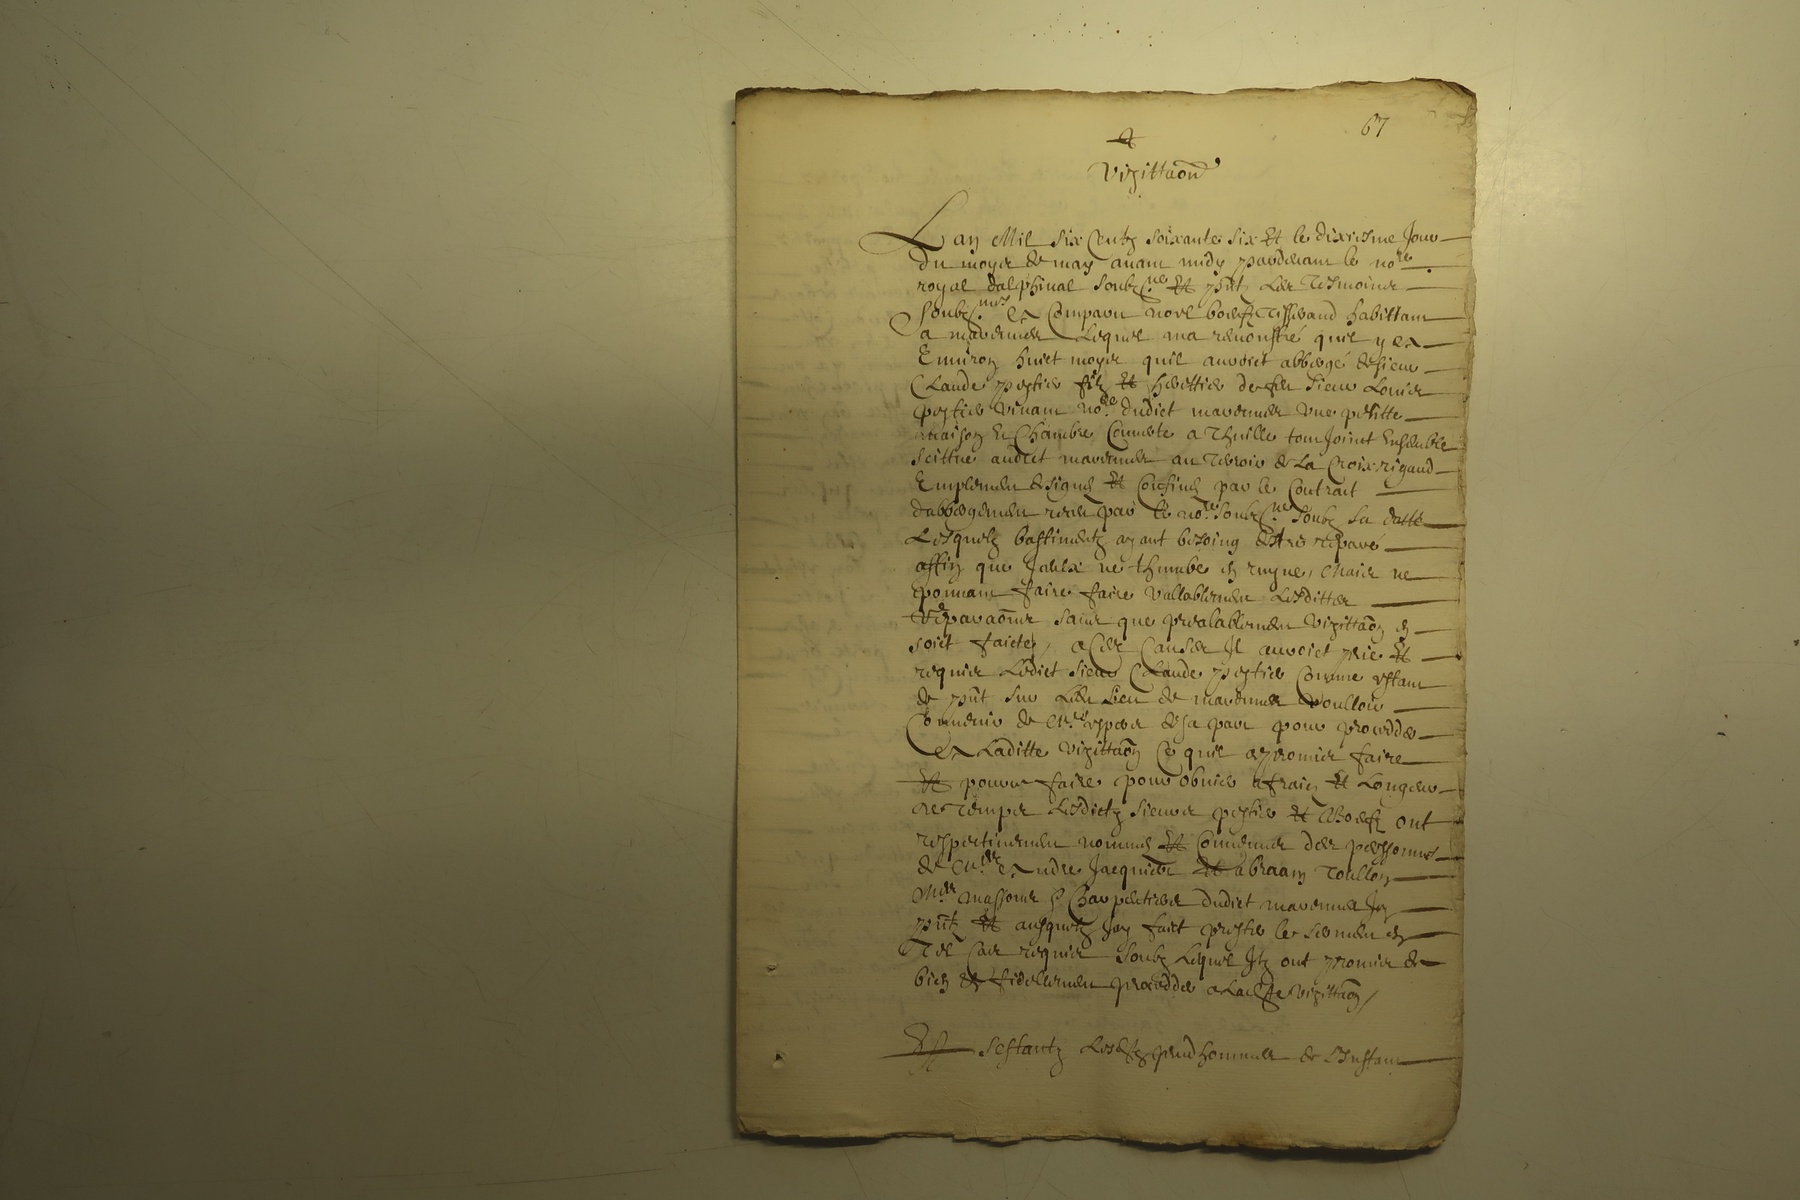 67
Vizittaõn
Lan Mil six Centz soixante six Et le dixiesme Jour
du moys de may avant midy pardevant le no.re
royal dalphinal soubz.né Et pñtz Les Tesmoings
soubz.nés Est Comparu noel boeuf Tisserand habittant
a Lequel ma remonstré quil y ea
Environ huict moys quil auroict abbergé de sieur
Claude filz Et herittier de feu sieur Louis
vivant no.re dudict une petitte
maison Et Chambre Couverte a Thuille tout Joinct Ensemble
scittue audict au Terroir de La Croix rigaud
Emplement designés Et Confinés par le Contract
dabbergement receu par le no.re soubz.né soubz sa datte
Lesquelz bastimentz ayant besoing destre reparé
affin que Jceulx ne thumbe en ruyne, Mais ne
pouvant faire faire vallablement Lesdittes
Reparaõns sans que prealablement vizittaõn en
soict faicte, a Ces Causes Il auroict prié Et
requis Ledict sieur Claude Comme estant
de pñt sur Ledict Lieu de voulloir
Convenir de de sa part pour proceddé
a Laditte vizittaõn Ce quil a promis faire
Et pour ce faire, pour obvier a fraiz Et Longueur
de Temps Lesdictz sieurs Et Boeuf ont
respectivement nommés Et Convenus des personnes
de M.es Andre Jacquier Et abraam Toullon
M.es massons Charpentiers dudict Jcy
pñtz Et ausquelz Jay faict prester le serment en
Tel Cas requis soubz Lequel Jlz ont promis de
bien Et fidellement procedder a Laditte vizittaõn,
Et sestantz Lesdictz prudhommes de Linstant